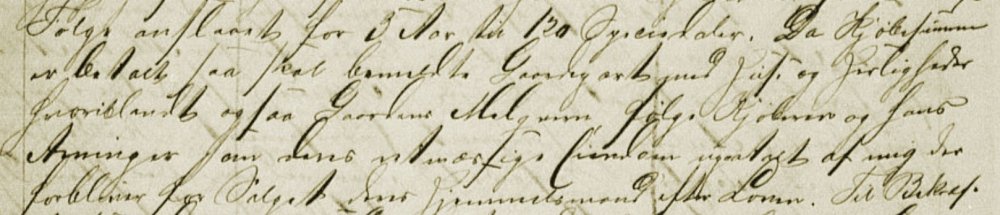 Følge anslaaet for 5 Aar til 120 Speciedaler. Da Kjøbesummen
er betalt saa skal bemeldte Gaardpart med Huse og Herligheder
hvoriblandt ogsaa Gaardens Melqvern følge Kjøberen og hans
Arvinger som deres retmæssige Eiendom upaatalt af mig der
forbliver for Salget deres Hjemmelsmand efter Loven. Til Bekræf-